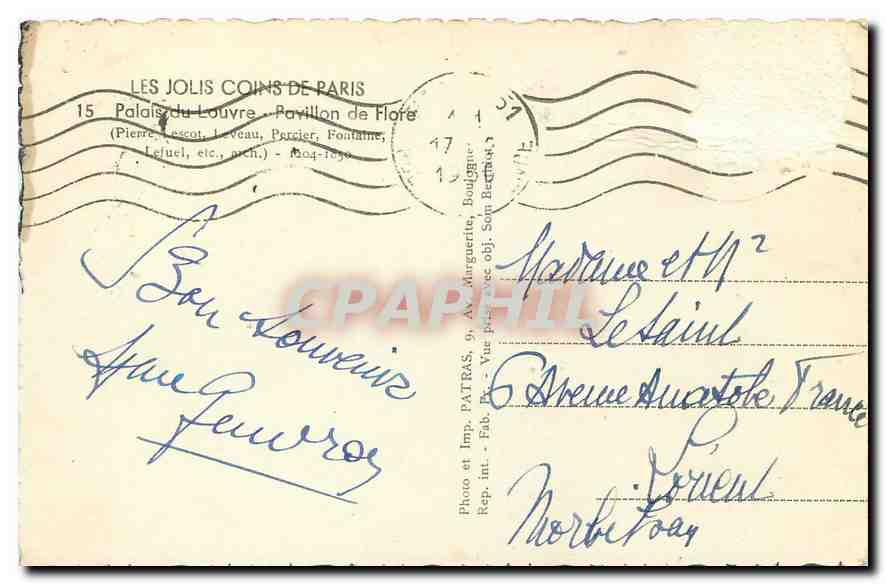 LES JOLIS COINS DE PARIS
15 Palais du Louvre - Pavillon de Flore
(Pierre Lescot, Leveau, Percier, Fontaine,
Lefuel, etc., arch.) - 1204-1850
17
Bon souvenir
Photo et Imp. PATRAS, 9, Av. Marguerite, Boulogne
Rep. int. - Fab. Fr. - Vue prise avec obj. Som Berthiot
Madame et Mr
Le Saint
6 Avenue Anatole France
Lorient
Morbihan
CPAPHIL